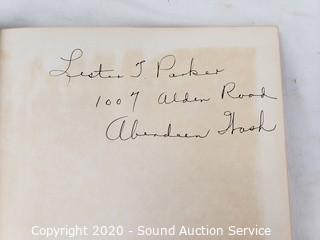 Lester T. Parker
1007 Alden Road
Aberdeen Wash
Copyright 2020 - Sound Auction Service